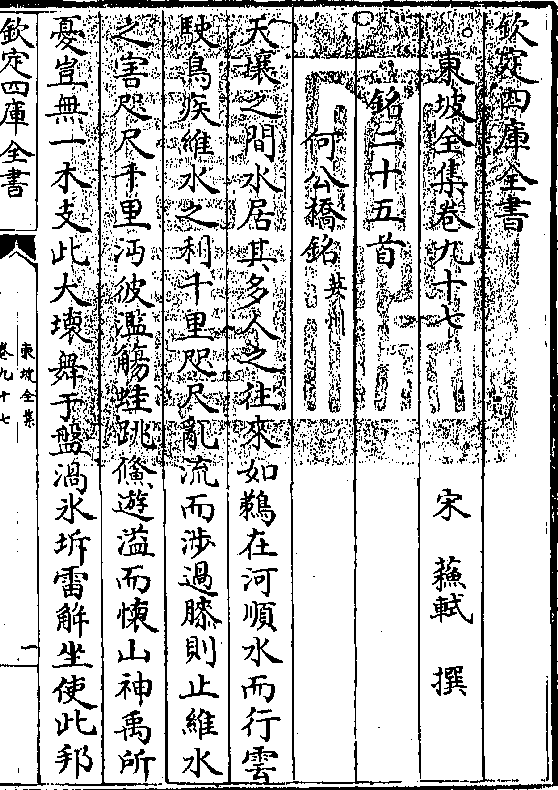 欽定四庫全書
東坡全集卷九十七
宋 蘇軾 撰
銘二十五首
何公橋銘英州
天壤之間水居其多人之往來如鵜在河順水而行雲
駛鳥疾維水之利千里咫尺亂流而涉過膝則止維水
之害咫尺千里沔彼濫觴蛙跳鯈遊溢而懷山神禹所
憂豈無一木支此大壞舞于盤渦氷坼雷解坐使此邦
欽定四庫全書
東坡全集
卷九十七
一